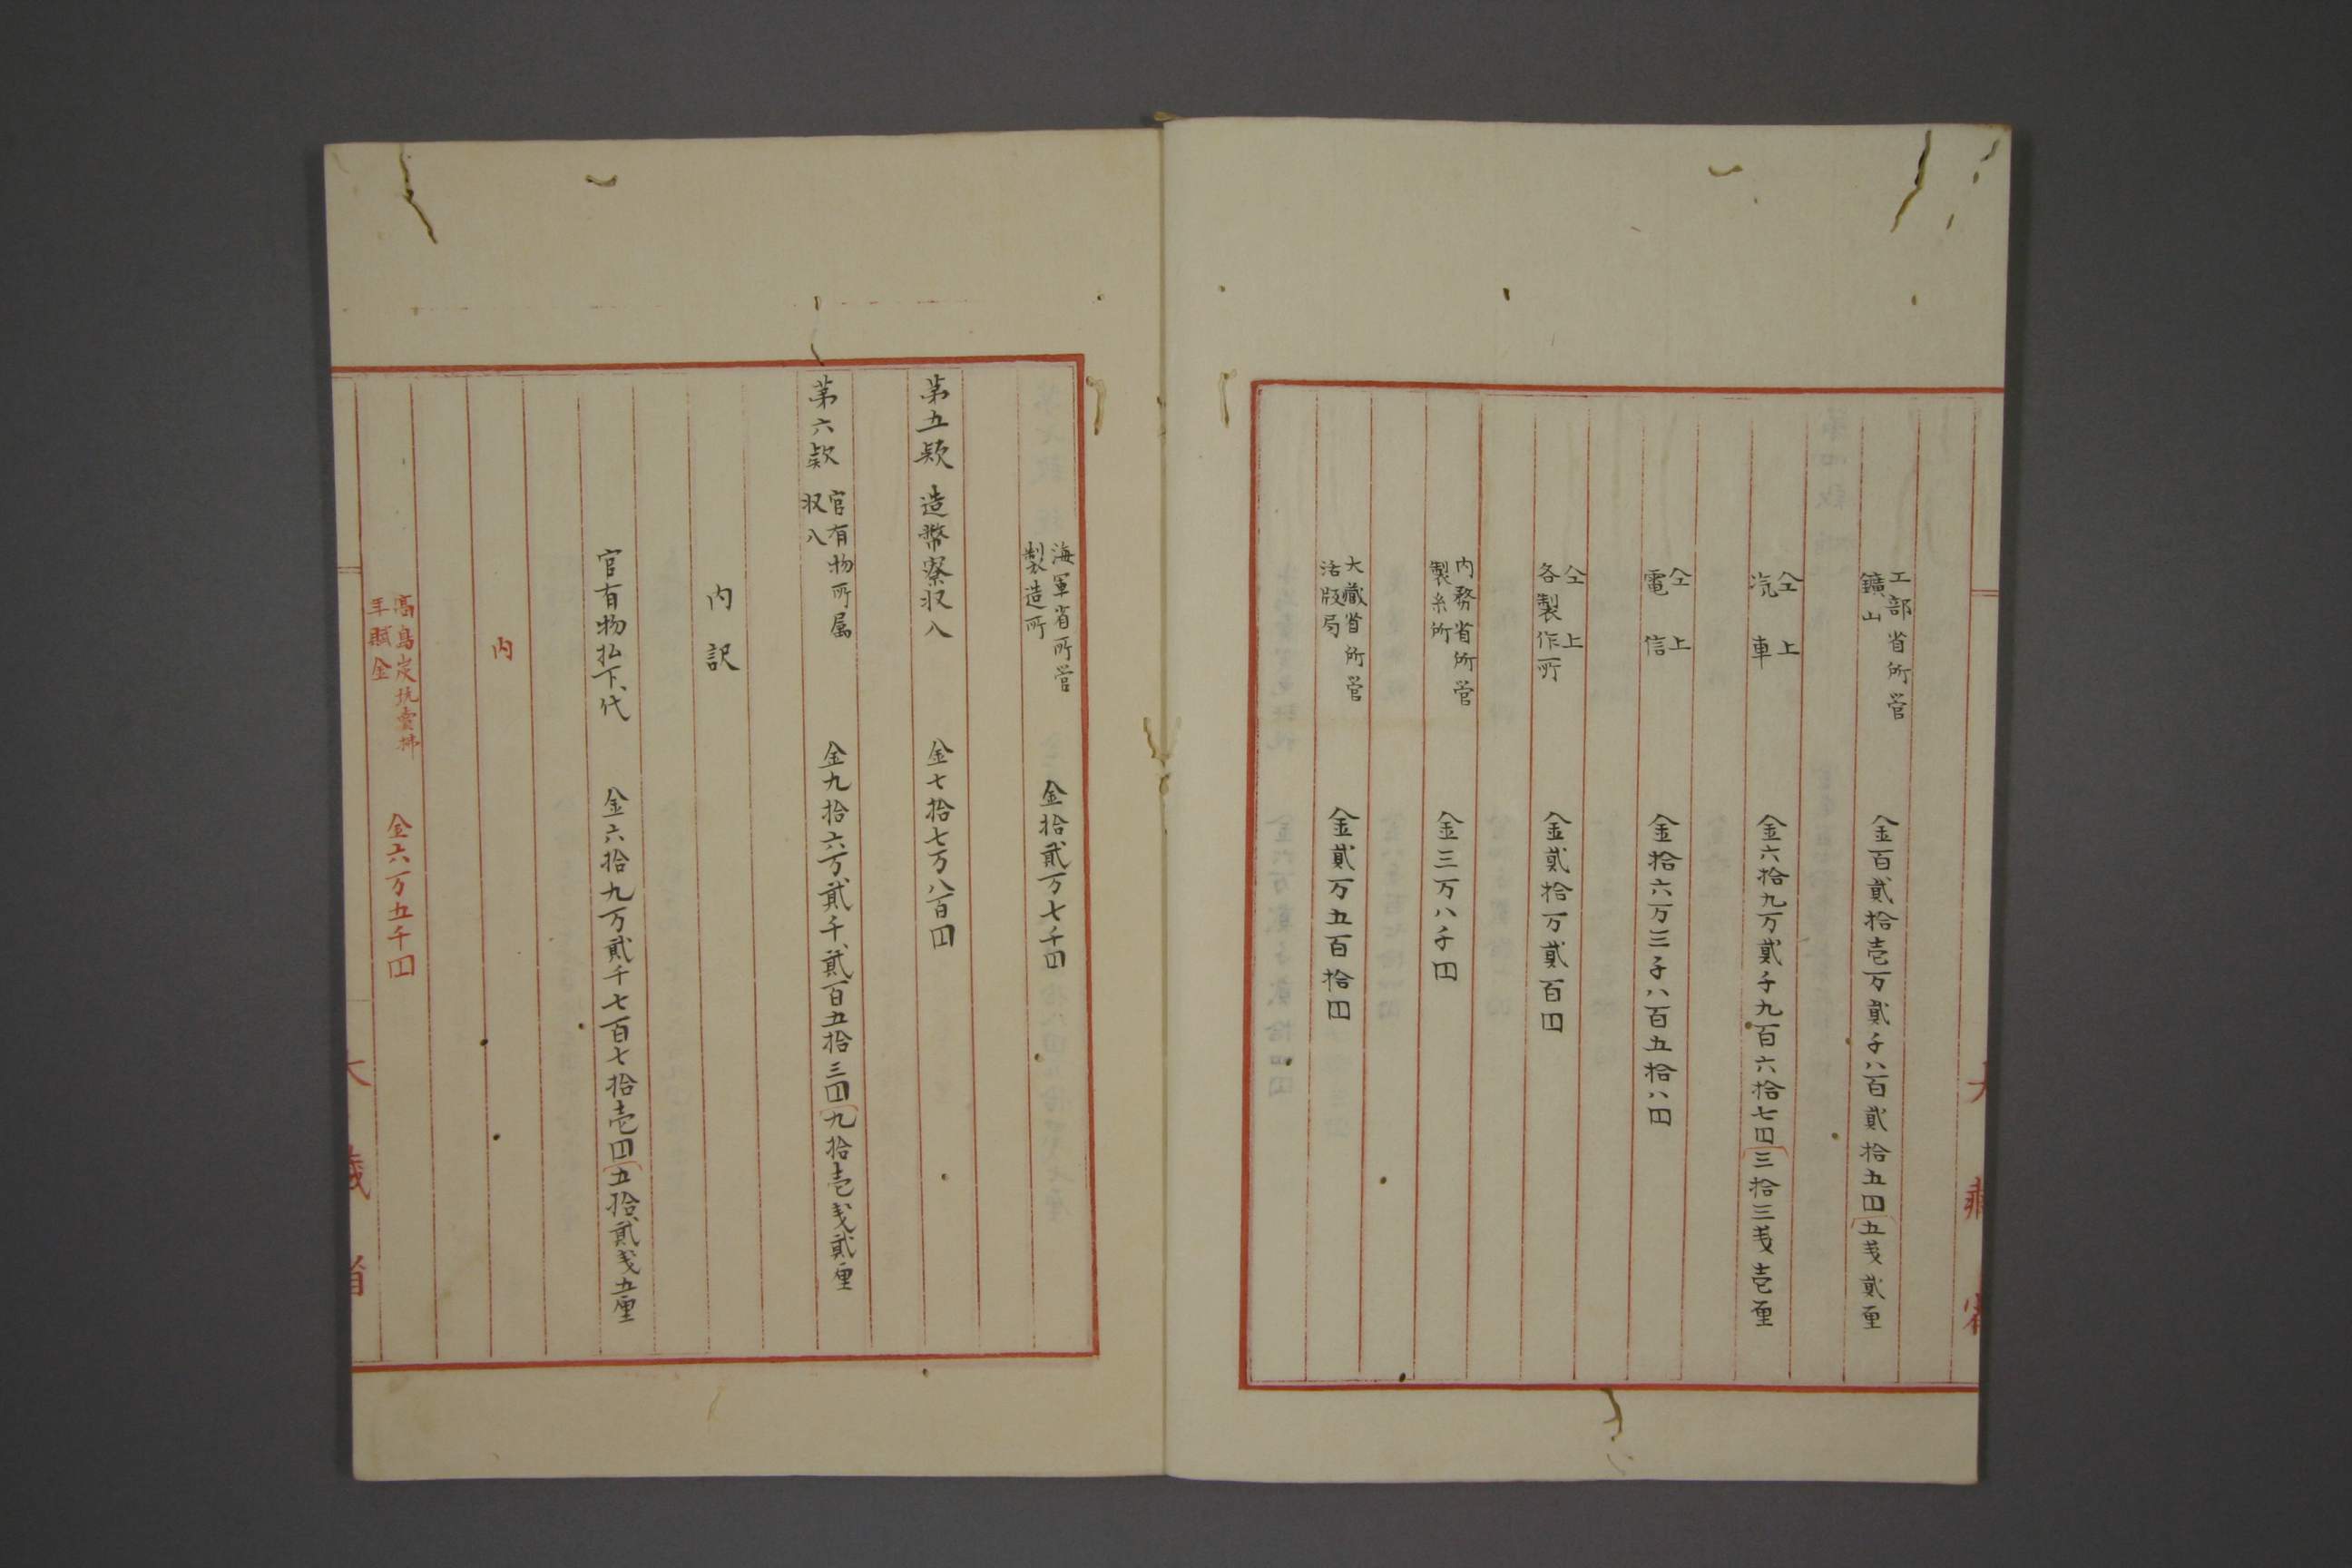 工部省所営
鑛山
金百貳拾壱万貳千八百貳拾五円五戔貳厘
仝上
汽車
金六拾九万貳千九百六拾七円三拾三戔壱厘
仝上
電信
金拾六万三千八百五拾八円
仝上
各製作所
金貳拾万貳百円
内務省所営
製糸所
金三万八千円
大蔵省所営
活版局
金貳万五百拾円
海軍省所営
製造所
金拾貳万七千円
第五款 造幣寮収入 金七拾七万八百円
第六款
官有物所属
収入
金九拾六万貳千貳百五拾三円九拾壱戔貳厘
内訳
官有物払下代 金六拾九万貳千七百七拾壱円五拾貳戔五厘
内
高島炭坑賣拂
年賦金
金六万五千円
大蔵省